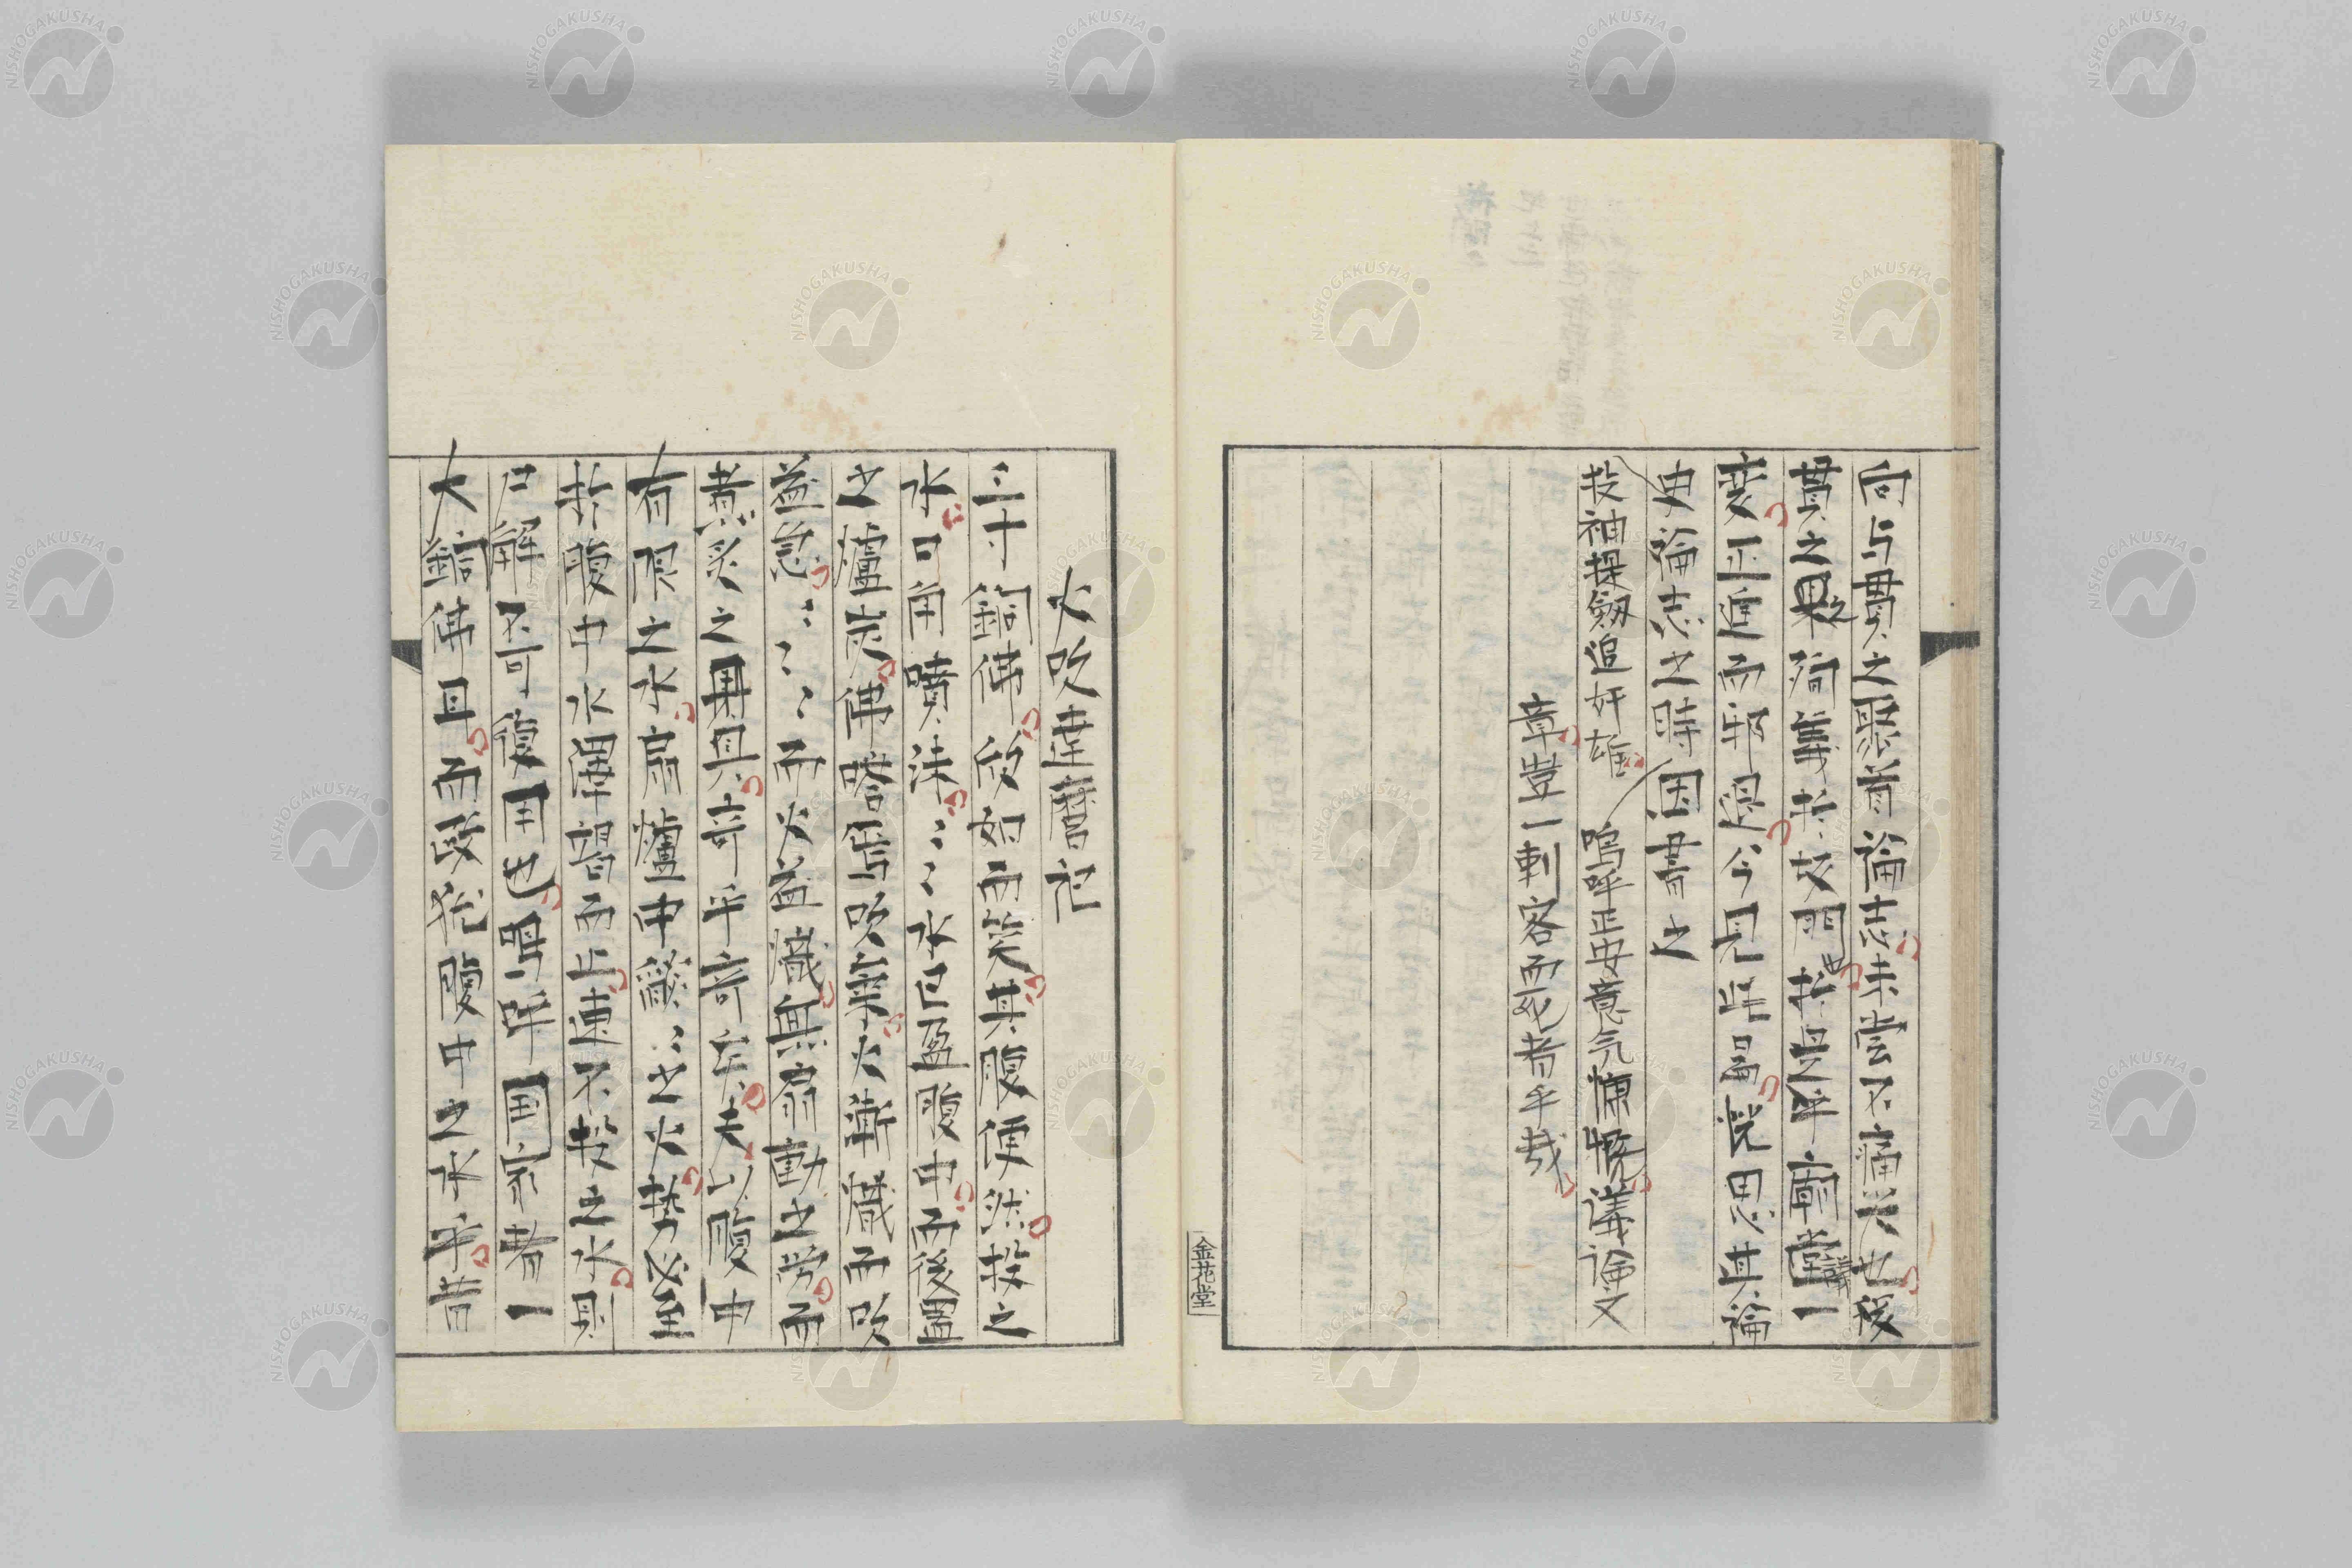 向占貫之聚首論志未嘗不痛哭也後
貫之果殉義於坂門也於是乎廟堂一
変正進而邪退今見此畐恍思其論
史論志之時因書之
投袖提劔追奸雄 嗚呼正安意気慷慨議論文
章豈一刺客而死者乎哉
金花堂
火吹達磨記
三寸銅佛欲如而笑其腹便然投之
水口角噴沫〻〻水已盈腹中而後置
之爐炭佛喀焉吹氣火漸熾而吹
益急〻〻〻而火益熾無扇動之労而
煮炙之用具奇乎奇矣夫以腹中
有限之水扇爐中焱〻之火勢必至
於腹中水渾竭而止速不投之水則
尸解不可復用也嗚呼国家者一
大銅佛耳而發於腹中之水乎昔
NISHOGAKUSHA